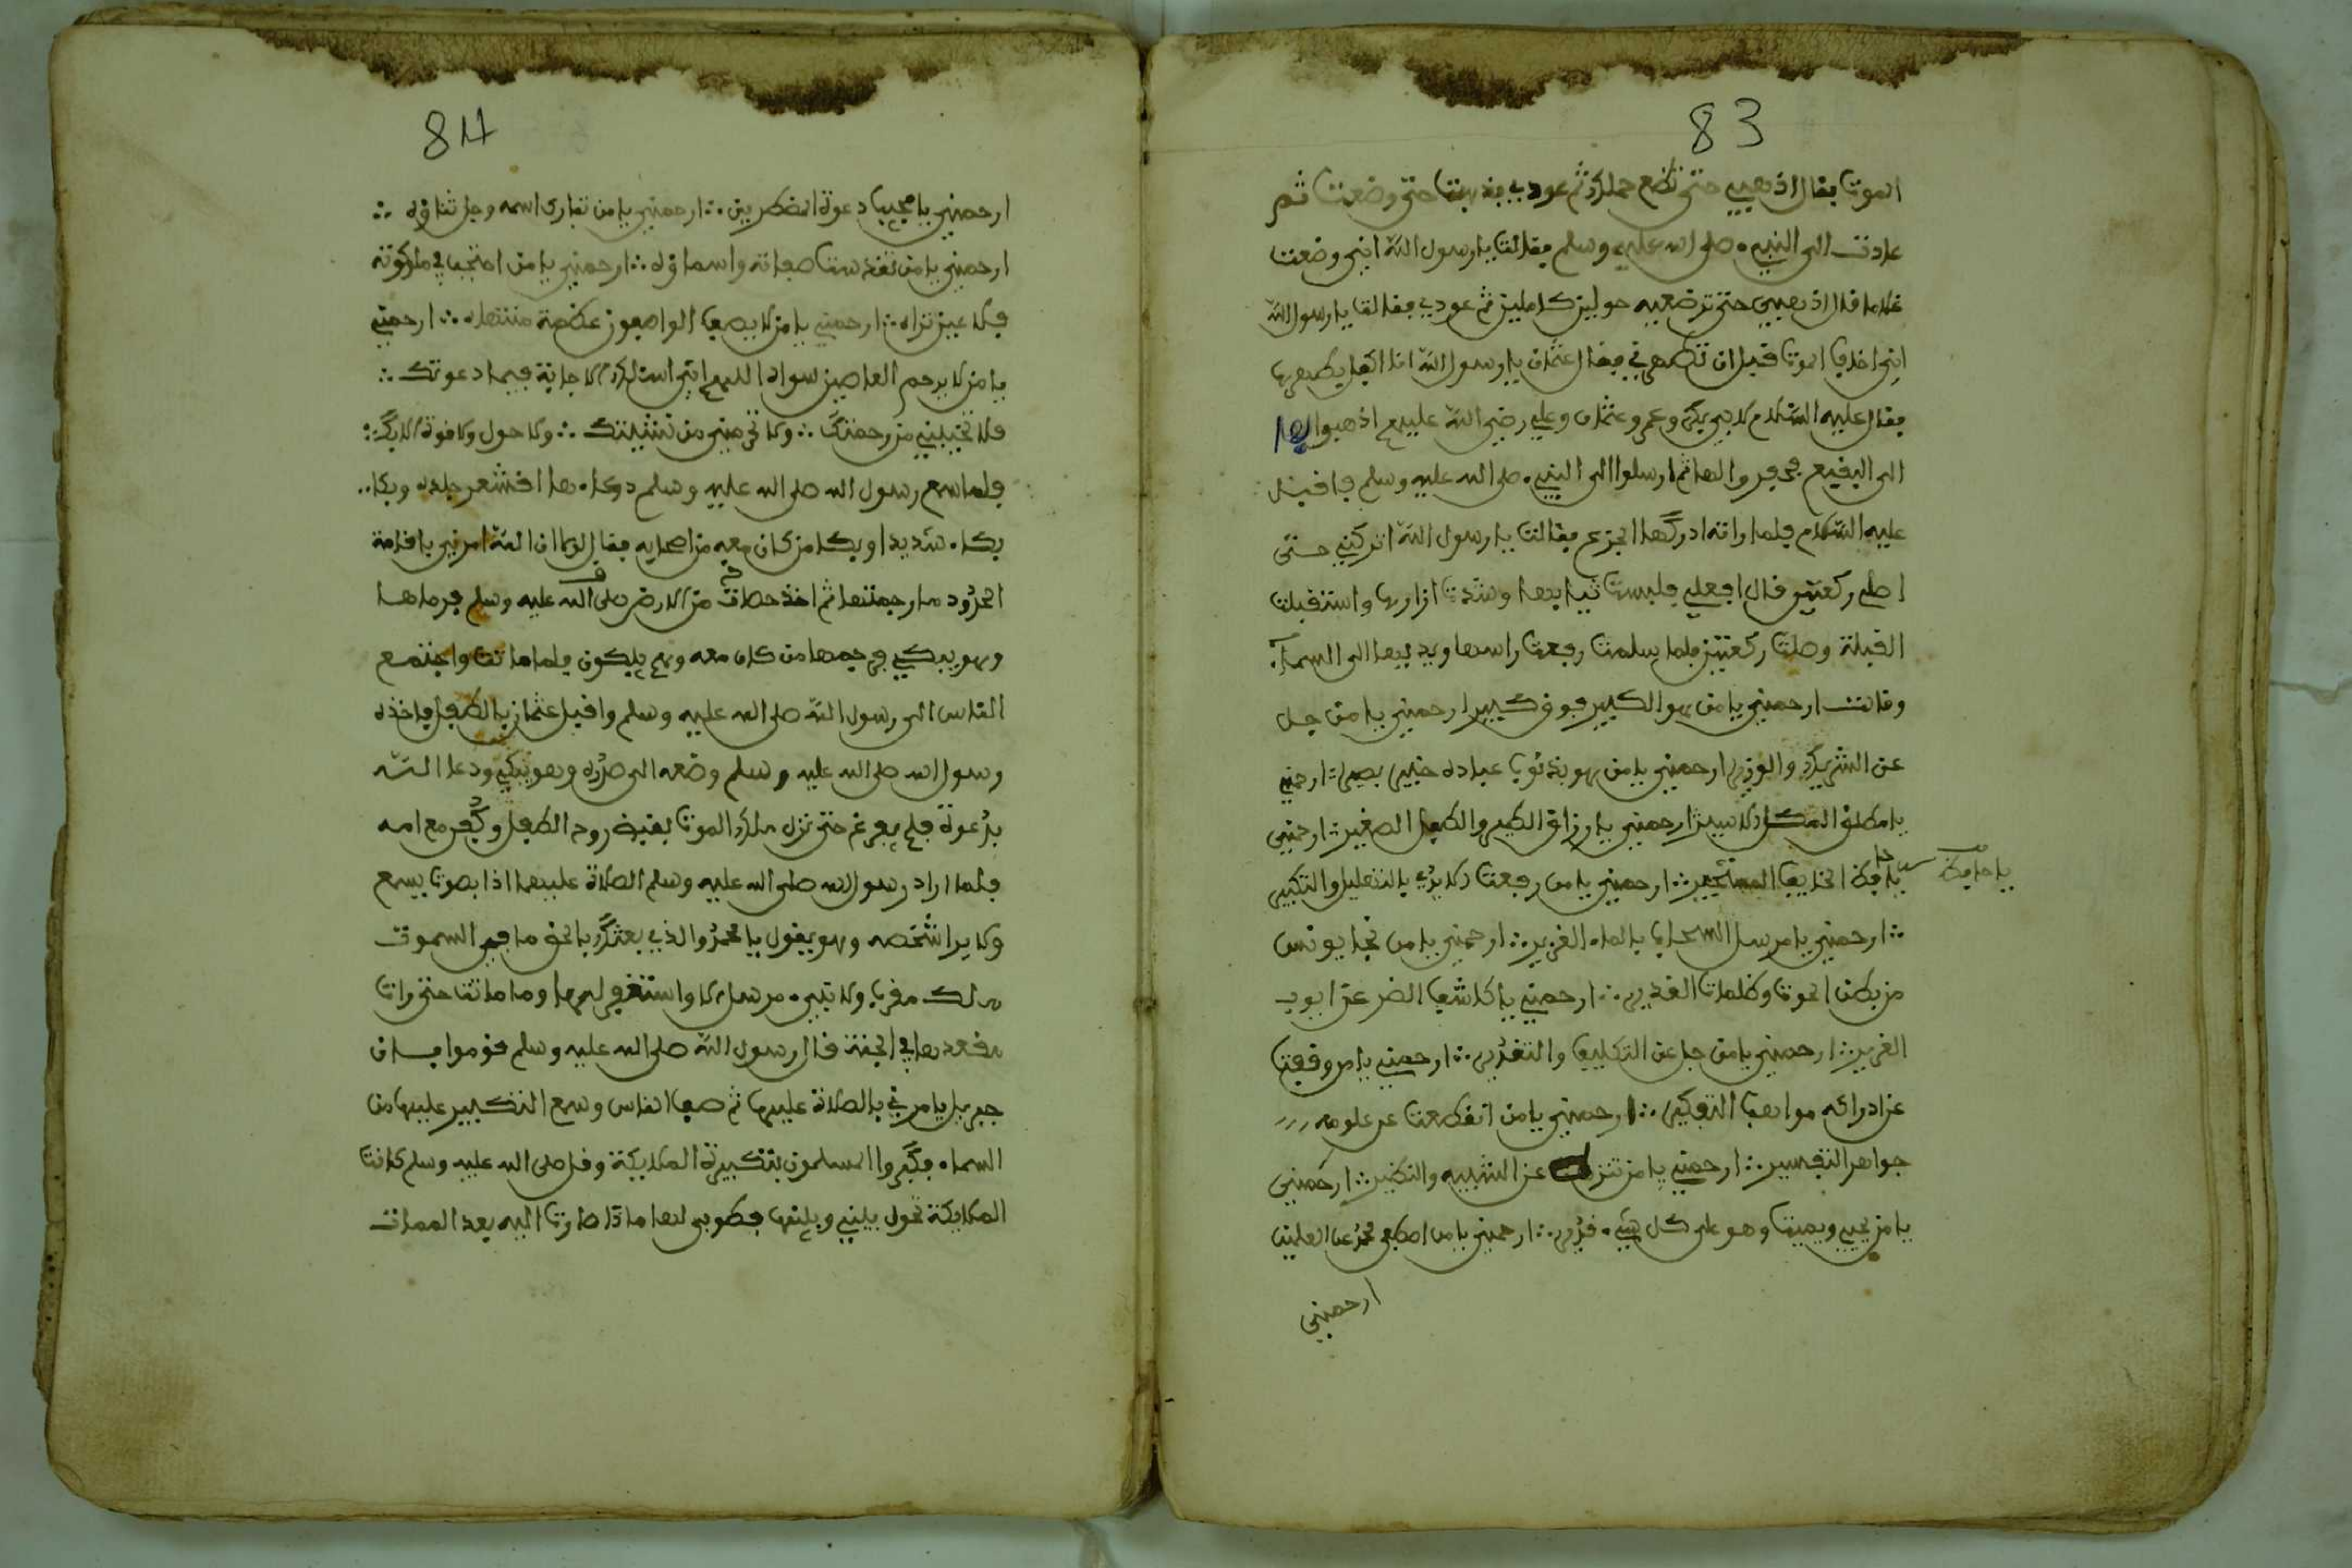 83
الموت فقال اذهبي حتى تضع حملك ثم عودي فذهبت حتى وضعت ثم
عادت الى النبيء صلى الله عليه وسلم فقالت يا رسول الله اني وضعت
غلاما قال اذهبي حتى ترضعيه حولين كاملين ثم عودي فقالت يا رسول الله
اني اخاف الموت قبل ان تطهرني فقال عثمان يا رسول الله انا اكفل
فقال عليه السلام لابي بكر وعمر وعثمان وعلي رضي الله عليهم اذهبوا بها
الى البقيع فحفروا لها ثم ارسلوا الى النبيء صلى الله عليه وسلم فاقبل
عليه السلام فلما راته ادركها الجزع فقالت يا رسول الله اتركني حتى
اصلي ركعتين قال افعلي فلبست ثيابها وشدت ازارها واستقبلت
القبلة وصلت ركعتين فلما سلمت رفعت راسها ويديها الى السماء
وقالت ارحمني يا من هو الكبير فوق كبير ارحمني يا من جل
عن الشريك والوزير ارحمني يا من هو بذنوب عباده خبير بصير ∴ ارحمني
يا مطلق المكبل الاسير ارحمني يا رازق الكبير والطفل الصغير ∴ ارحمني
يا حافظ الخايف المستجير ∴ ارحمني يا من رفعت له الايدي بالتهليل والتكبير
يا حافظ
∴ ارحمني يا مرسل السحاب بالماء الغزير ∴ ارحمني يا من نجا يونس
من بطن الحوت وظلمات الغدير ∴ ارحمني يا كاشف الضر عن ايوب
الضرير ∴ ارحمني يا من جل عن التكليف والتقدير ∴ ارحمني يا من وقفت
عن ادراكه مواهب التفكير ∴ ارحمني يا من انقطعت عن علومه
جواهر التفسير ∴ ارحمني يا من تنزه عن الشبيه والنظير ∴ ارحمني
يا من يحيي ويميت وهو على كل شيء قدير ∴ ارحمني يا من اصطفى محمد على العلمين
ارحمني
84
ارحمني يا مجيب دعوة المضطرين ∴ ارحمني يا من تبارك اسمه وجل ثناؤه ∴
ارحمني يا من تقدست صفاته واسماؤه ∴ ارحمني يا من احتجب في ملكوته
فلا عين تراه ∴ ارحمني يا من لا يصف الواصفون عظمة منتهاه ∴ ارحمني
يا من لا يرحم العاصين سواه اللهم اني اسئلك الاجابة فيما دعوتك ∴
فلا تخيبني من رحمتك ∴ ولا تحرمني من ∴ ولا حول ولا قوة الا بك ∴
فلما سمع رسول الله صلى الله عليه وسلم دعاءها اقشعر جلده وبكا
بكاء شديدا وبكا من كان معه من اصحابه فقال لولا ان الله امرني باقامة
الحدود ما رجمتها ثم اخذ حصات من الارض صلى الله عليه وسلم فرماها
وهو يبكي فرجمها من كان معه وهم يبكون فلما ماتت واجتمع
الناس الى رسول الله صلى الله عليه وسلم واقبل عثمان بالطفل فاخذه
رسول الله صلى الله عليه وسلم وضعه الى صدره وهو يبكي ودعا الله
بدعوة فلم يفرغ حتى نزل ملك الموت لقبض روح الطفل وكفن مع امه
فلما اراد رسول الله صلى الله عليه وسلم الصلاة عليهما اذا بصوت يسمع
ولا يرا شخصه وهو يقول يا محمد والذي بعثك بالحق ما في السموت
ملك مقرب ولا نبيء مرسل الا واستغفر لها وما ماتت حتى رات
مقعدها في الجنة قال رسول الله صلى الله عليه وسلم قوموا فان
جبريل يامرني بالصلاة عليها ثم صف الناس وسمع التكبير عليها من
السماء فكبروا المسلمون بتكبيرة الملايكة وقال صلى الله عليه وسلم كانت
الملايكة تحول بيني وبينها فطوبى لها ماذا صارت اليه بعد الممات